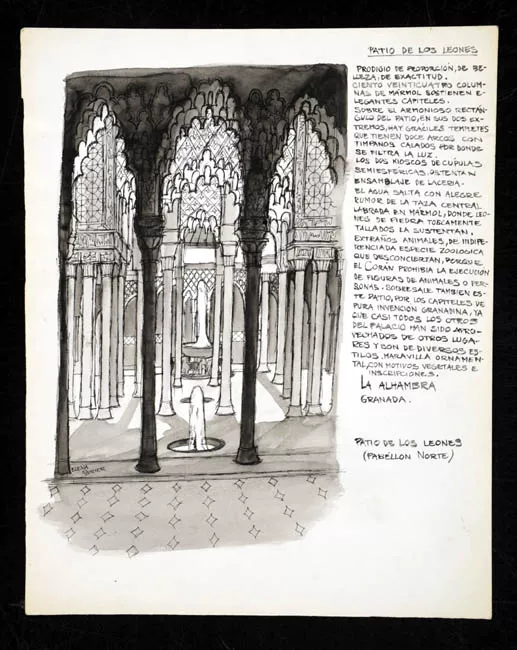 PATIO DE LOS LEONES
PRODIGIO DE PROPORCIÓN, DE BE-
LLEZA, DE EXACTITUD.
CIENTO VEINTICUATRO COLUM-
NAS DE MÁRMOL SOSTIENEN E-
LEGANTES CAPITELES.
SOBRE EL ARMONIOSO RECTÁN-
GULO DEL PATIO, EN SUS DOS EX-
TREMOS, HAY GRACILES TEMPLETES
QUE TIENEN DOCE ARCOS CON
TIMPANOS CALADOS POR DONDE
SE FILTRA LA LUZ.
LOS DOS KIOSCOS DE CUPULAS
SEMIESFERICAS, OSTENTAN
ENSAMBLAJE DE LACERIA.
EL AGUA SALTA CON ALEGRE
RUMOR DE LA TAZA CENTRAL
LABRADA EN MÁRMOL, DONDE LEO-
NES DE PIEDRA TOSCAMENTE
TALLADOS LA SUSTENTAN.
EXTRAÑOS ANIMALES, DE INDIFE-
RENCIADA ESPECIE ZOOLOGICA
QUE DESCONCIERTAN, PORQUE
EL CORÁN PROHIBIA LA EJECUCIÓN
DE FIGURAS DE ANIMALES O PER-
SONAS. SOBRESALE TAMBIEN ES-
TE PATIO, POR LOS CAPITELES DE
PURA INVENCIÓN GRANADINA, YA
QUE CASI TODOS LOS OTROS
DEL PALACIO HAN SIDO APRO-
VECHADOS DE OTROS LUGA-
RES Y SON DE DIVERSOS ES-
TILOS. MARAVILLA ORNAMEN-
TAL, CON MOTIVOS VEGETALES E
INSCRIPCIONES.
LA ALHAMBRA
GRANADA.
PATIO DE LOS LEONES
(PABELLON NORTE)
ELENA